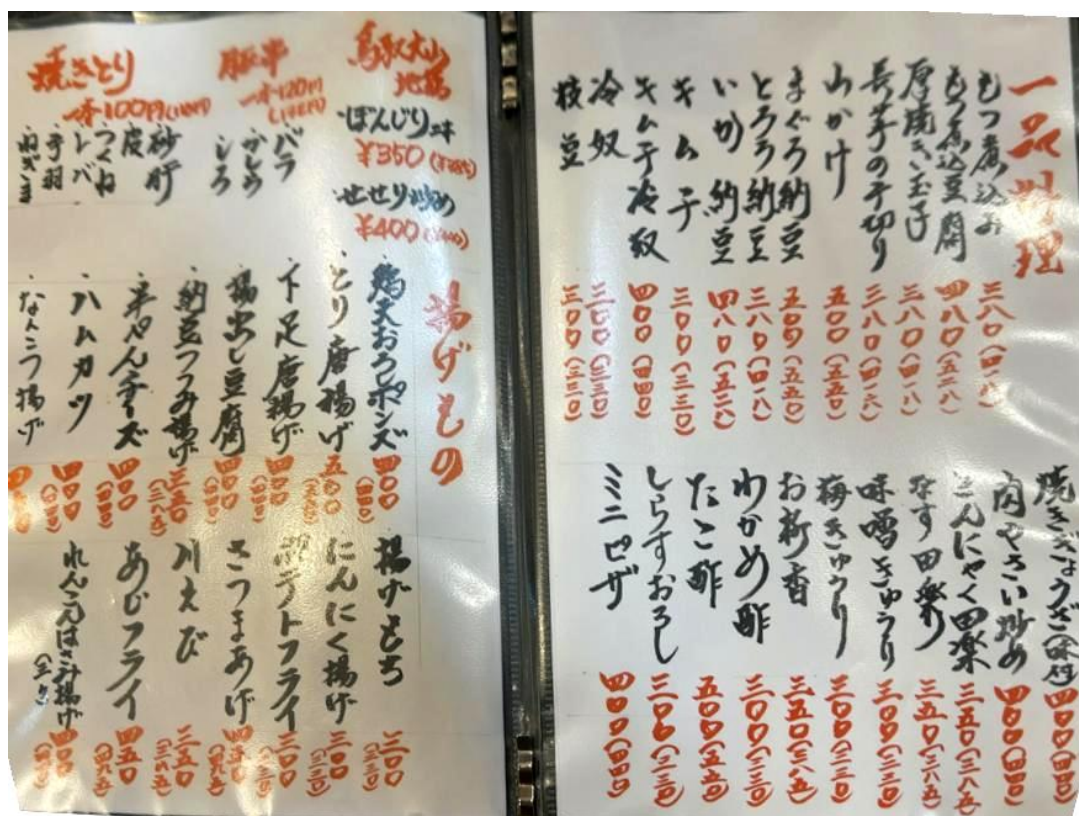 一品料理
もつ煮込み 三八〇(四一八)
もつ煮込豆腐 四八〇(五二八)
厚焼き玉子 三八〇(四一八)
長芋の千切り 三八〇(四一八)
山かけ 五〇〇(五五〇)
まぐろ納豆 五〇〇(五五〇)
とろろ納豆 三八〇(四一八)
いか納豆 四八〇(五二八)
キムチ 三〇〇(三三〇)
キムチ冷奴 四〇〇(四四〇)
冷奴 三〇〇(三三〇)
枝豆 三〇〇(三三〇)
焼きぎょうざ(味付) 四〇〇(四四〇)
肉やさい炒め 四〇〇(四四〇)
こんにゃく田楽 三五〇(三八五)
なす田楽 三五〇(三八五)
味噌きゅうり 三〇〇(三三〇)
梅きゅうり 三〇〇(三三〇)
お新香 三五〇(三八五)
わかめ酢 三〇〇(三三〇)
たこ酢 五〇〇(五五〇)
しらすおろし 三〇〇(三三〇)
ミニピザ 四〇〇(四四〇)
鳥取大山地鶏
・ぼんじり
¥350(385)
・せせり炒め
¥400(440)
豚串
一本120円
バラ
かしら
シロ
焼きとり
一本100円(110円)
砂肝
皮
つくね
レバ
・手羽
・ねぎま
揚げもの
・鶏天おろしポンズ 四〇〇(四四〇)
・とり唐揚げ 五〇〇
・下足唐揚げ 四〇〇(四四〇)
・揚出し豆腐 四〇〇(四四〇)
・納豆つつみ揚げ 三五〇(三八五)
・半ぺんチーズ 四〇〇(四四〇)
・ハムカツ 四〇〇(四四〇)
・なんこつ揚げ
揚げもち 三〇〇(三三〇)
にんにく揚げ 三〇〇(三三〇)
ポテトフライ 三〇〇(三三〇)
さつまあげ 四五〇(四九五)
川えび 三五〇(三八五)
あじフライ 四五〇(四九五)
れんこんはさみ揚げ 四〇〇(四四〇)